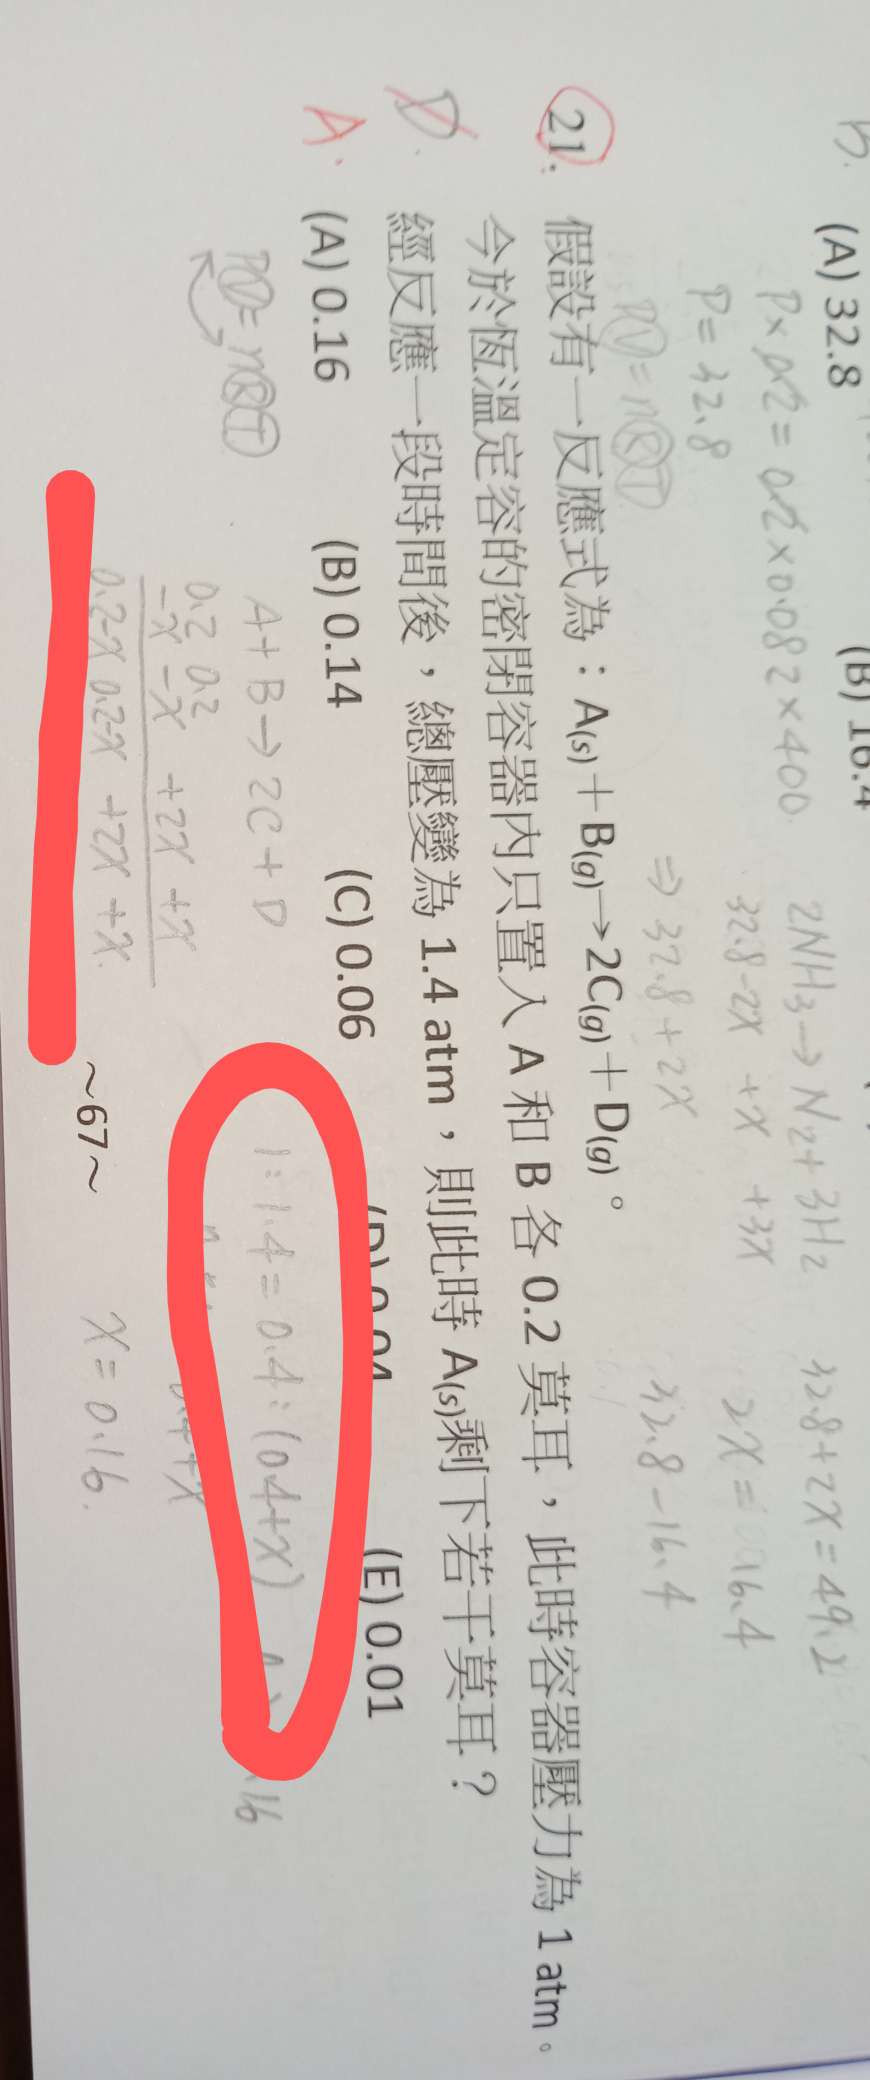 D.
(A) 32.8
(B) 16.4
P×0.2=0.2×0.082×400
P=32.8
2NH3→N2+3H2
32.8-2x +x +3x
⇒32.8+2x
32.8+2x=49.2
2x=16.4
32.8-16.4
PV=nRT
21. 假設有一反應式為：A(s)＋B(g)→2C(g)＋D(g)。
今於恆溫定容的密閉容器內只置入 A 和 B 各 0.2 莫耳，此時容器壓力為 1 atm。
D. 經反應一段時間後，總壓變為 1.4 atm，則此時 A(s)剩下若干莫耳？
A. (A) 0.16 (B) 0.14 (C) 0.06 (D) 0.04 (E) 0.01
PV=nRT
A+B→2C+D
0.2 0.2
-x -x +2x +x
0.2-x 0.2-x +2x +x
1:1.4=0.4:(0.4+x)
0.4+x
.16
x=0.16.
～67～